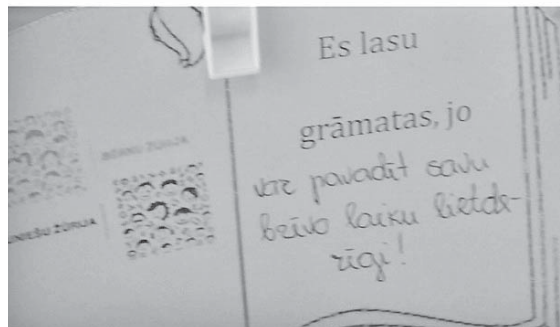 Es lasu
grāmatas, jo
var pavadīt savu
brīvo laiku lietde-
rīgi!
BĒRNU ŽŪRIJA
JAUNIEŠU ŽŪRIJA